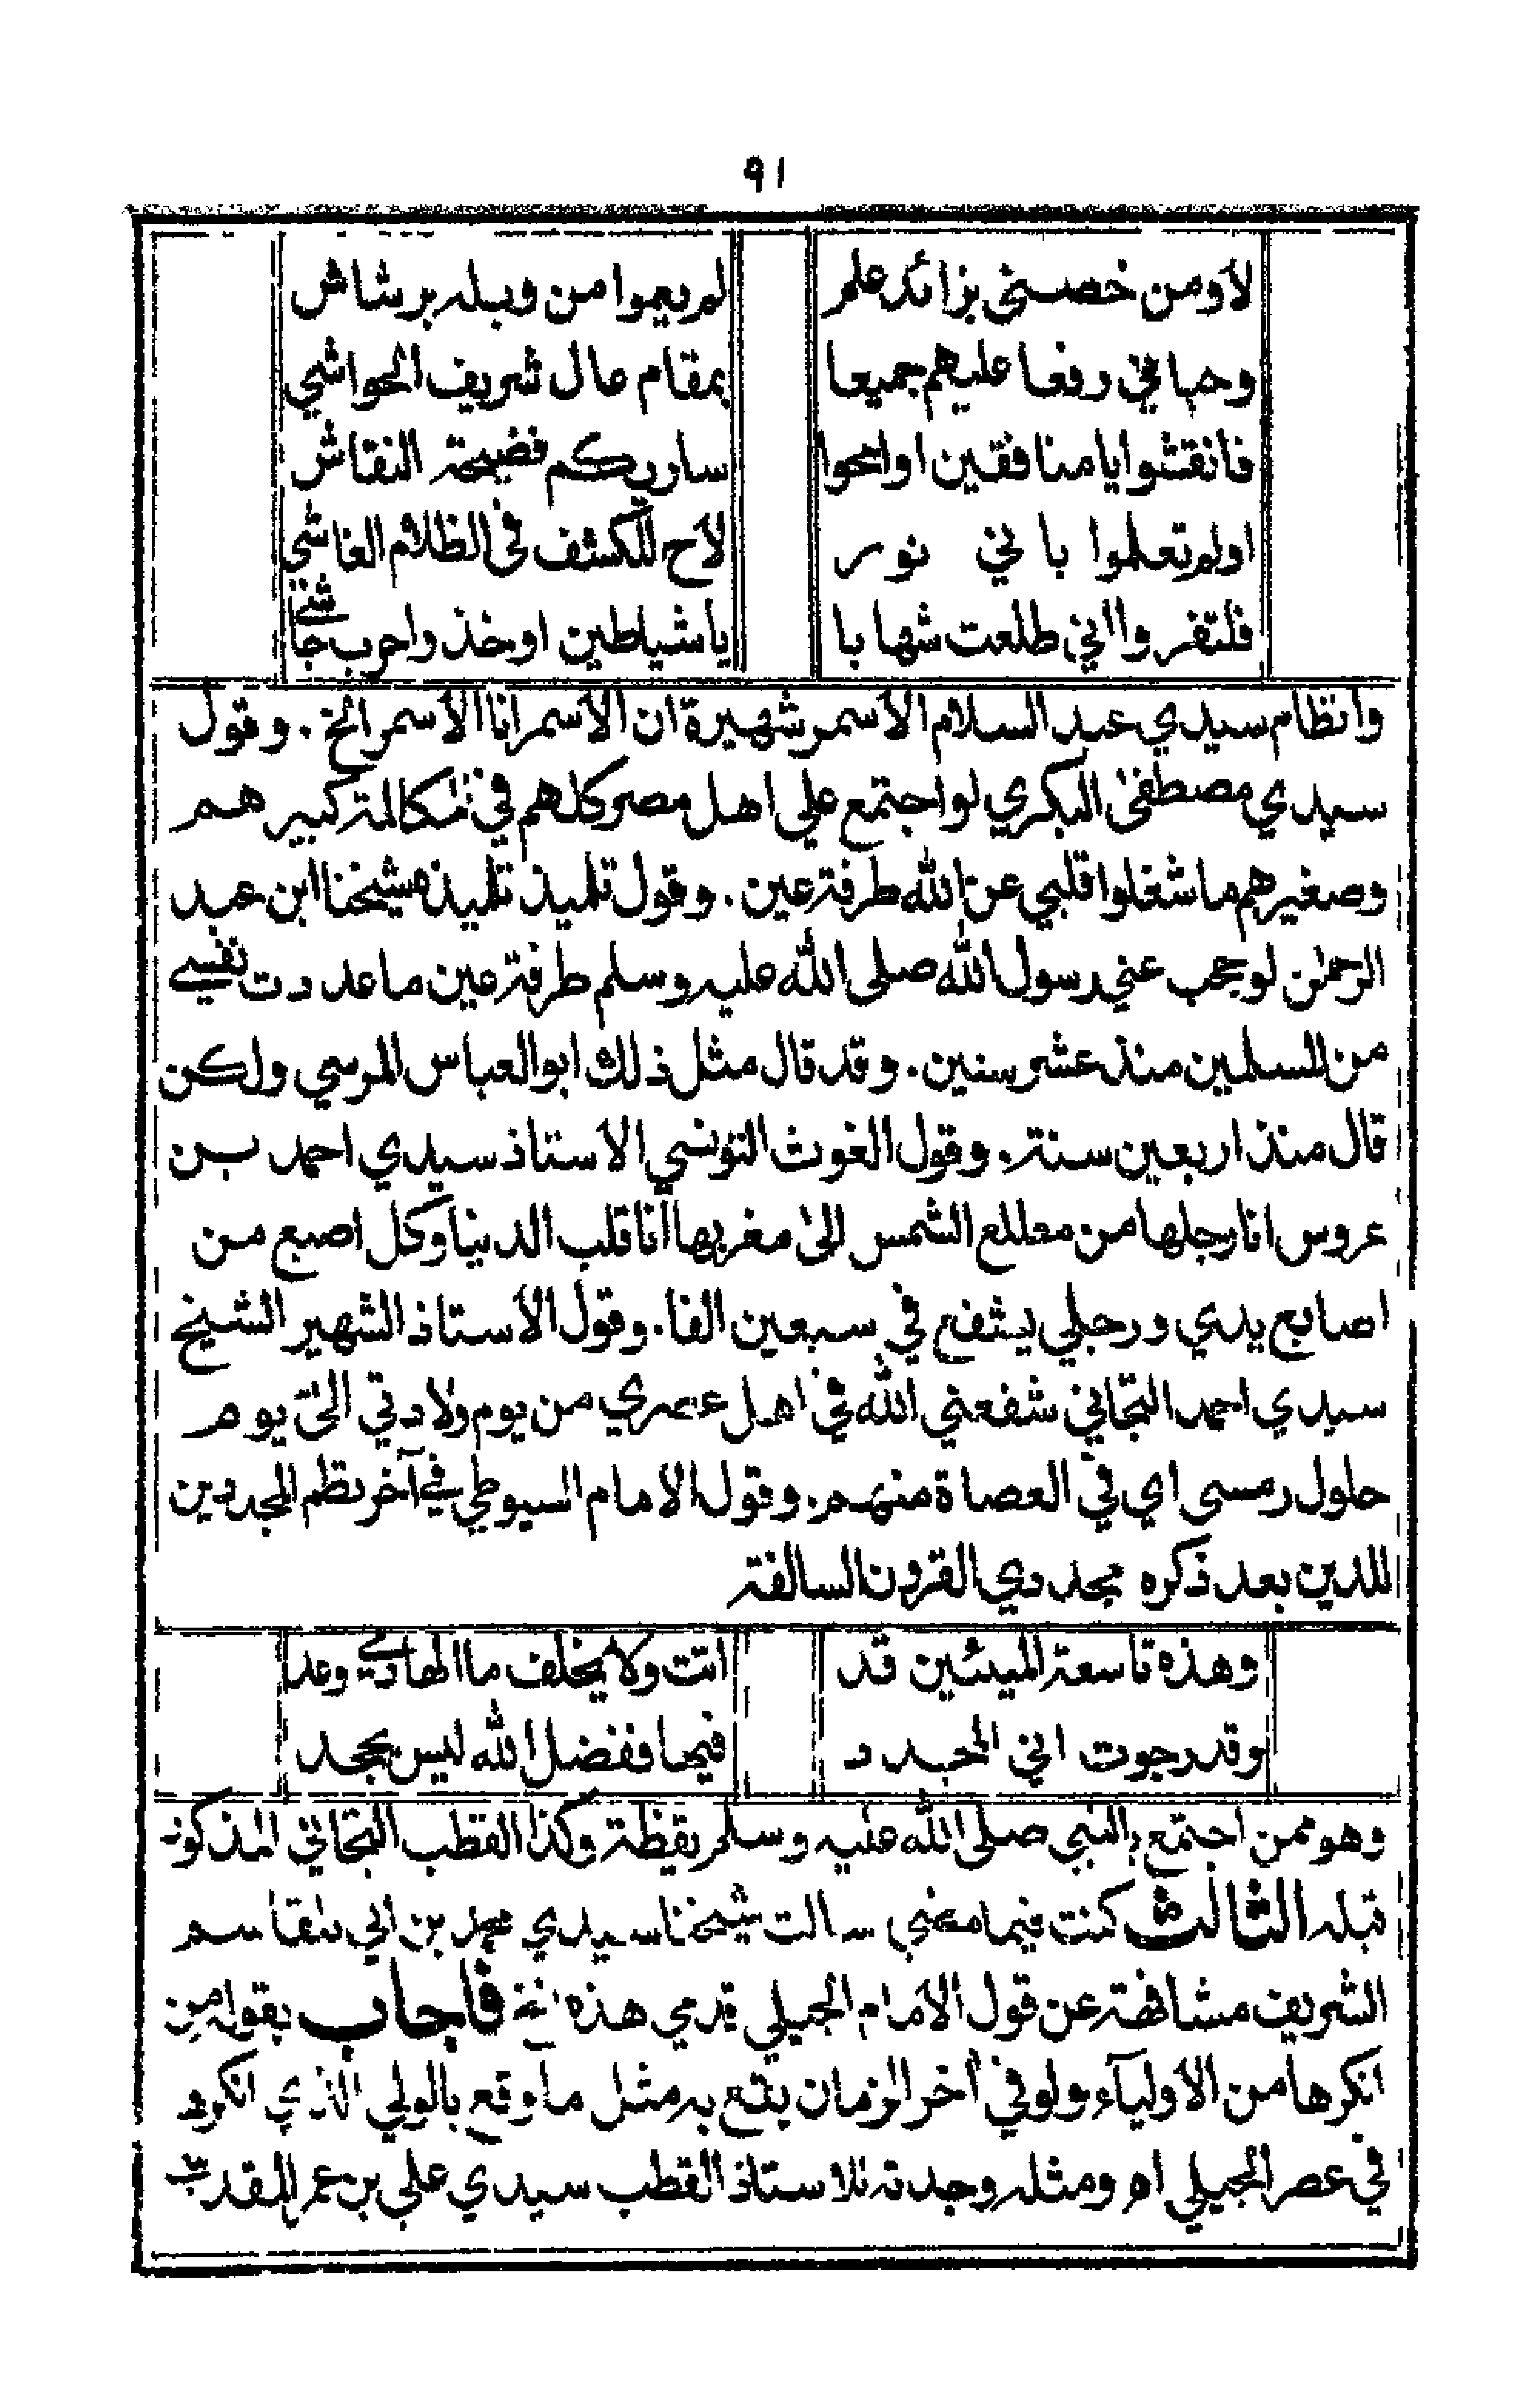 ٩١
لاومن خصني بزائد علم لم يعموا من وبله برشاش
وحباني رفعا عليهم جميعا بمقام عال شريف الحواشي
فانقشوا يا منافقين او امحوا ساريكم فضيحة النقاش
اولم تعلموا باني نور لاح للكشف في الظلام الغاشي
فلتفروا اني طلعت شهابا ياشياطين اوخذ واحرب جاشي
وانظام سيدي عبد السلام الاسمر شهيرة ان الاسمر انا الاسمر الخ . وقول
سيدي مصطفى البكري لو اجتمع علي اهل مصر كلهم في مكالمة كبيرهم
وصغيرهم ما شغلوا قلبي عن الله طرفة عين . وقول تلميذ تلميذه شيخنا ابن عبد
الرحمن لو حجب عني رسول الله صلى الله عليه وسلم طرفة عين ما عددت نفسي
من المسلمين منذ عشر سنين . وقد قال مثل ذلك ابو العباس المرسي ولكن
قال منذ اربعين سنة . وقول الغوث التونسي الاستاذ سيدي احمد بن
عروس انا رجلها من مطلع الشمس الى مغربها انا قلب الدنيا وكل اصبع من
اصابع يدي ورجلي يشفع في سبعين الفا . وقول الاستاذ الشهير الشيخ
سيدي احمد التجاني شفعني الله في اهل عصري من يوم ولادتي الى يوم
حلول رمسى اي في العصاة منهم . وقول الامام السيوطي في آخر نظم المجددين
للدين بعد ذكره مجددي القرون السالفة
وهذه تاسعة الميئين قد اتت ولا يخلف ما الهادي وعد
وقد رجوت اني المجدد فيها ففضل الله ليس يجحد
وهو ممن اجتمع بالنبي صلى الله عليه وسلم يقظة وكذا القطب التجاني المذكور
قبله الثالث كنت فيما مضى سالت شيخنا سيدي محمد بن ابي بلقاسم
الشريف مشافهة عن قول الامام الجيلي قدمي هذه الخ فاجاب بقوله من
انكرها من الاولياء ولو في آخر الزمان يقع به مثل ما وقع بالولي الذي انكرها
في عصر الجيلي اه ومثله وجدته للاستاذ القطب سيدي علي بن عمر